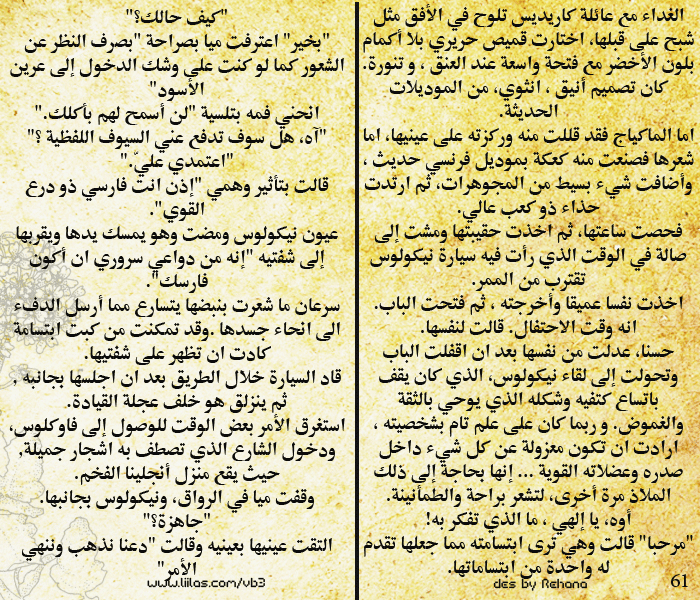 الغداء مع عائلة كاريديس تلوح في الأفق مثل
شبح على قبلها، اختارت قميص حريري بلا أكمام
بلون الأخضر مع فتحة واسعة عند العنق ، و تنورة.
كان تصميم أنيق ، انثوي، من الموديلات
الحديثة.
اما الماكياج فقد قللت منه وركزته على عينيها، اما
شعرها فصنعت منه كعكة بموديل فرنسي حديث ،
وأضافت شيء بسيط من المجوهرات، ثم ارتدت
حذاء ذو كعب عالي.
فحصت ساعتها، ثم اخذت حقيبتها ومشت إلى
صالة في الوقت الذي رأت فيه سيارة نيكولوس
تقترب من الممر.
اخذت نفسا عميقا وأخرجته ، ثم فتحت الباب.
انه وقت الاحتفال. قالت لنفسها.
حسنا، عدلت من نفسها بعد ان اقفلت الباب
وتحولت إلى لقاء نيكولوس، الذي كان يقف
باتساع كتفيه وشكله الذي يوحي بالثقة
والغموض. و ربما كان على علم تام بشخصيته ،
ارادت ان تكون معزولة عن كل شيء داخل
صدره وعضلاته القوية ... إنها بحاجة إلى ذلك
الملاذ مرة أخرى، لتشعر براحة والطمانينة.
أوه، يا إلهي ، ما الذي تفكر به!
"مرحبا" قالت وهي ترى ابتسامته مما جعلها تقدم
له واحدة من ابتساماتها.
des by Rehana
61
"كيف حالك؟"
"بخير" اعترفت ميا بصراحة "بصرف النظر عن
الشعور كما لو كنت على وشك الدخول إلى عرين
الأسود"
انحني فمه بتلسية "لن أسمح لهم بأكلك."
"آه، هل سوف تدفع عني السيوف اللفظية ؟"
"اعتمدي عليّ."
قالت بتأثير وهمي "إذن انت فارسي ذو درع
القوي".
عيون نيكولوس ومضت وهو يمسك يدها ويقربها
إلى شفتيه "إنه من دواعي سروري ان أكون
فارسك".
سرعان ما شعرت بنبضها يتسارع مما أرسل الدفء
الى انحاء جسدها .وقد تمكنت من كبت ابتسامة
كادت ان تظهر على شفتيها.
قاد السيارة خلال الطريق بعد ان اجلسها بجانبه ,
ثم ينزلق هو خلف عجلة القيادة.
استغرق الأمر بعض الوقت للوصول إلى فاوكلوس،
ودخول الشارع الذي تصطف به اشجار جميلة.
حيث يقع منزل أنجلينا الفخم.
وقفت ميا في الرواق، ونيكولوس بجانبها.
"جاهزة؟"
التقت عينيها بعينيه وقالت "دعنا نذهب وننهي
الأمر"
www.liilas.com/vb3